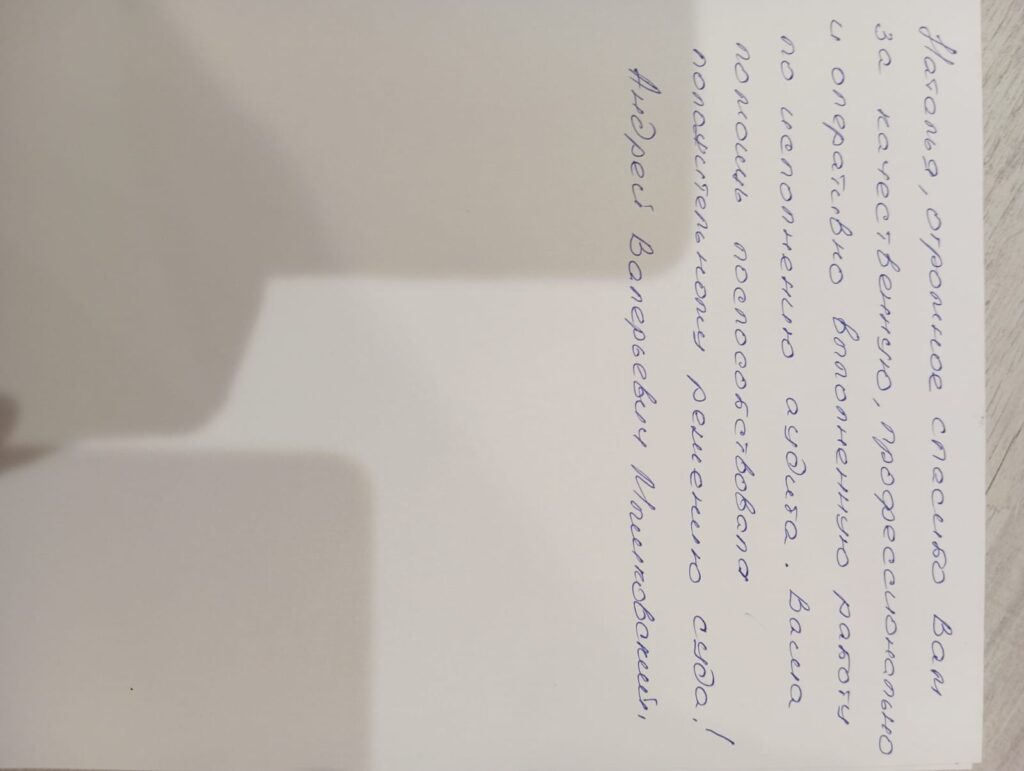 Наталья, огромное спасибо Вам
за качественную, профессионально
и оперативно выполненную работу
по исполнению аудита. Ваша
помощь поспособствовала
положительному решению суда!
Андрей Валерьевич